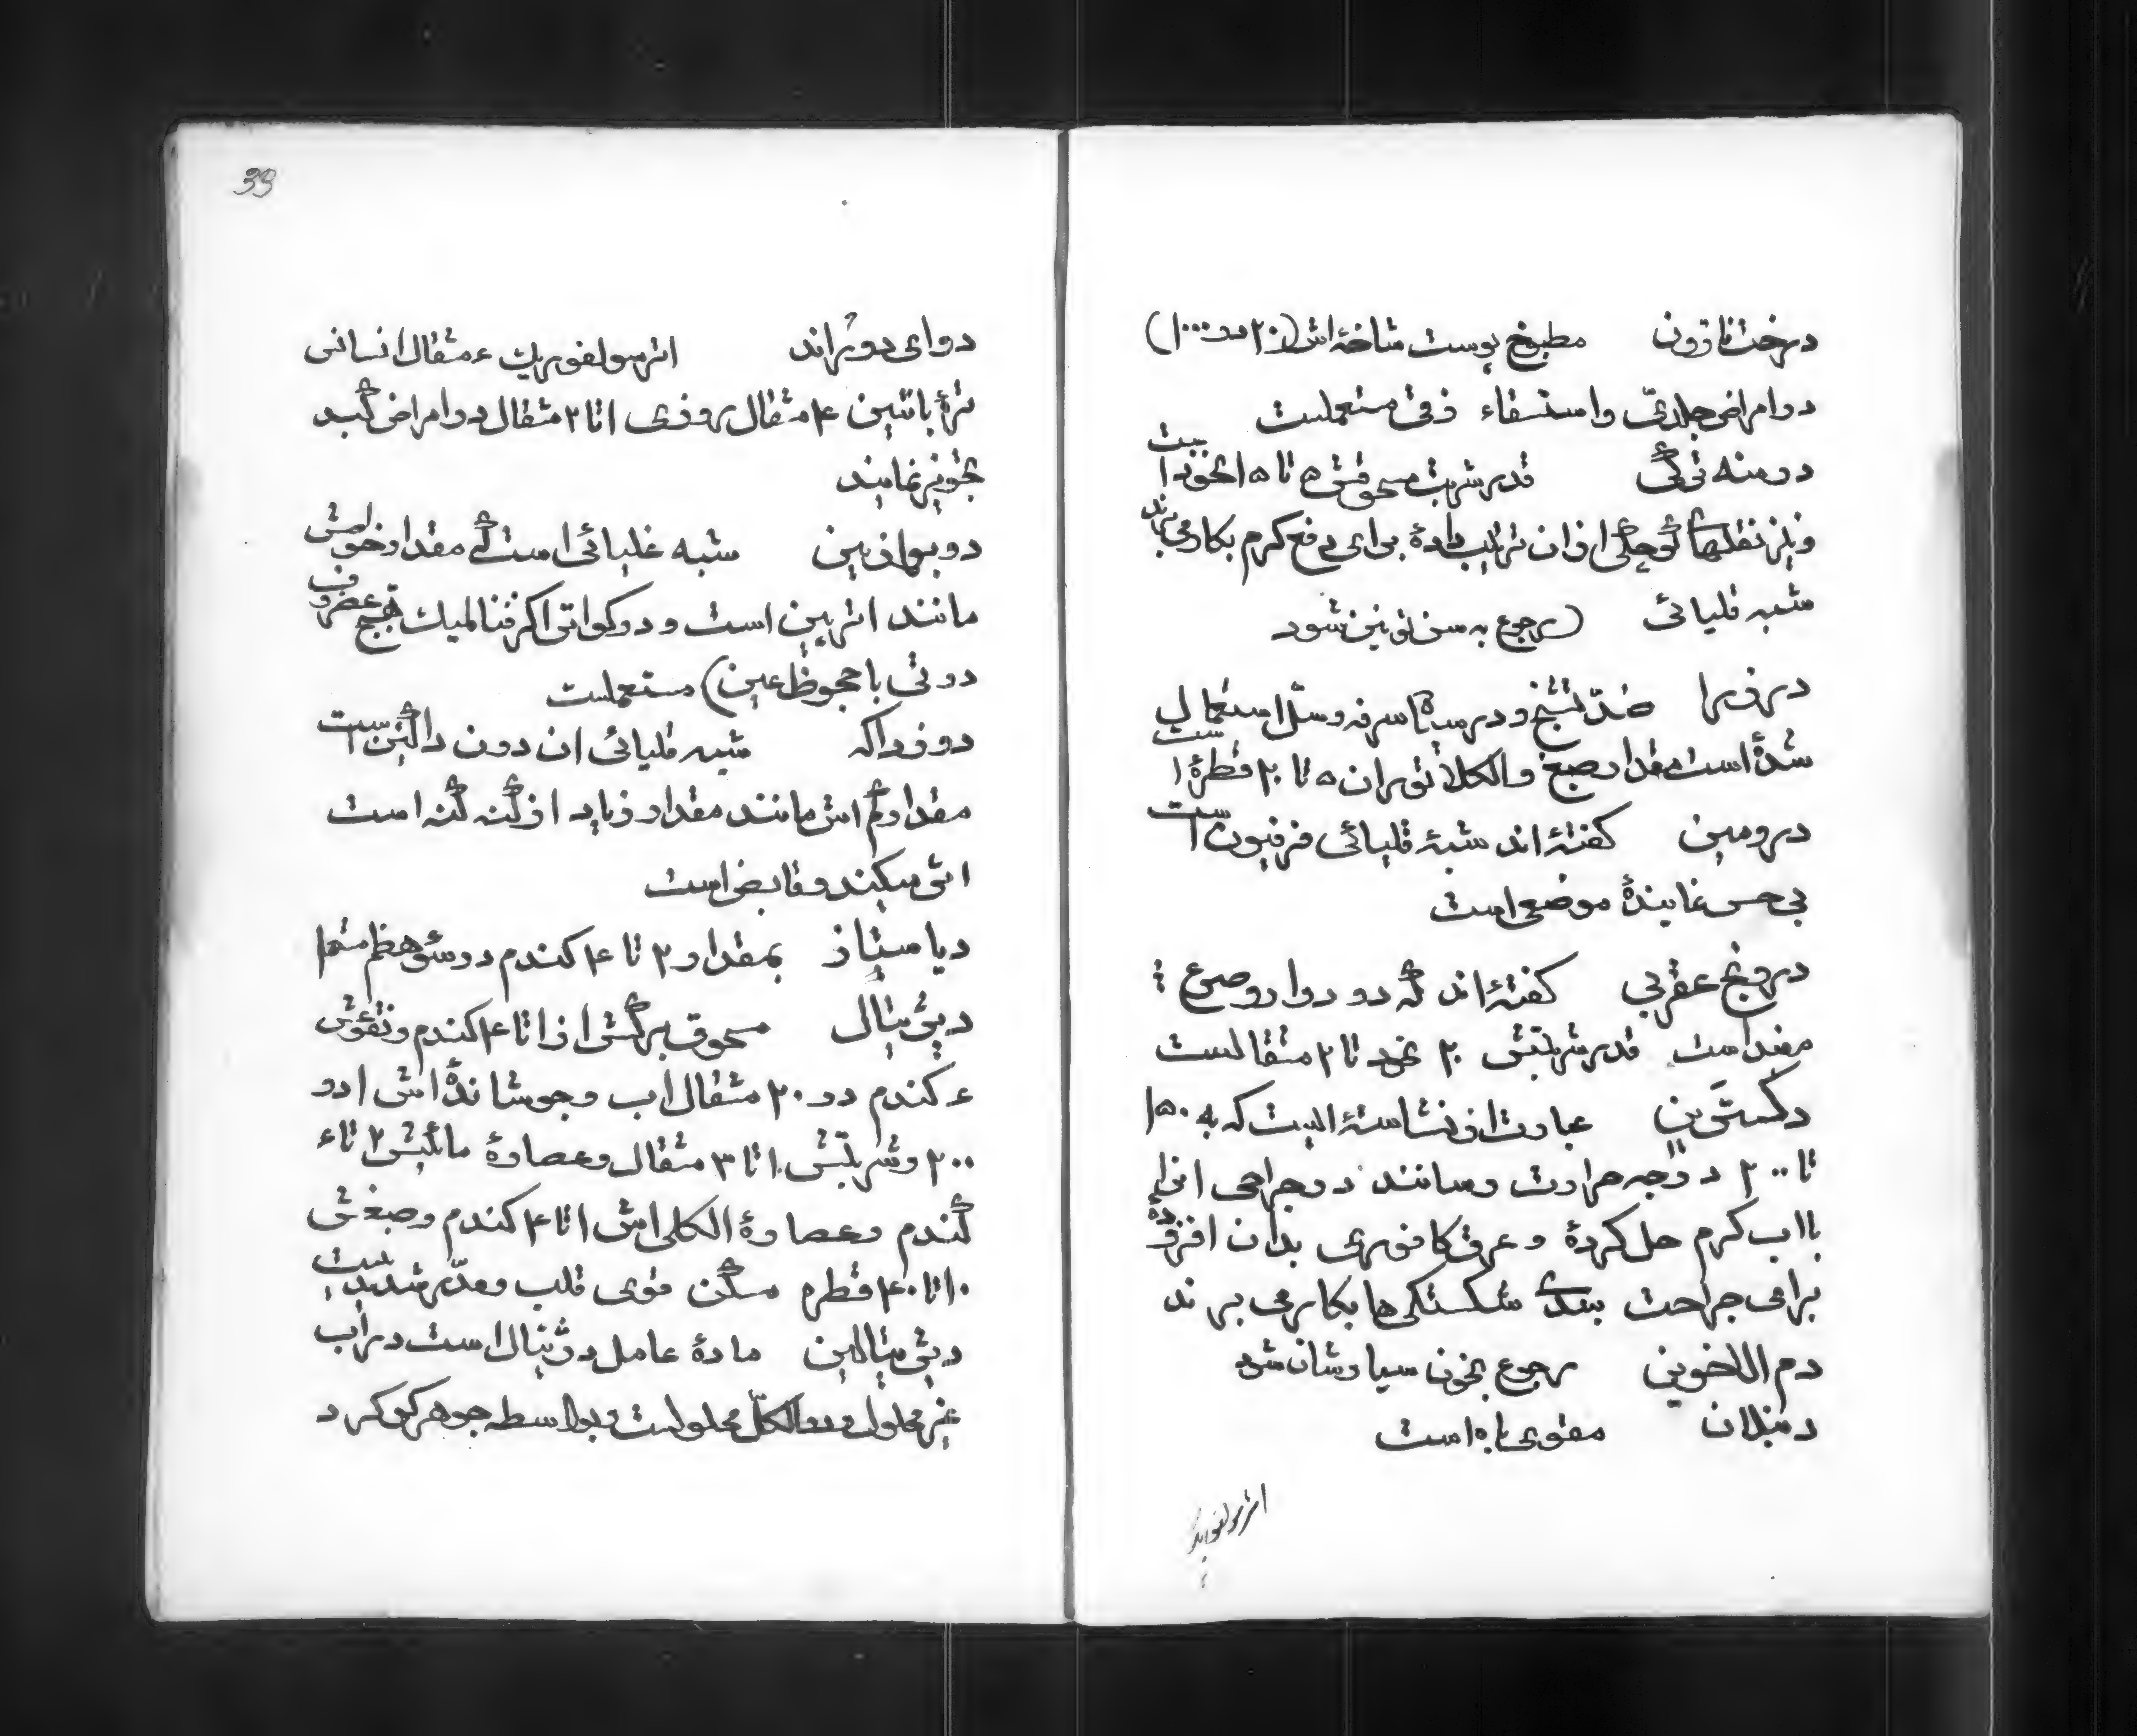 درخت نارون مطبوخ پوست شاخهٔ اش (۲۰ در ۱۰۰۰)
در امراض جلدیّ و استسقاء زقی مستعملست
درمنه ترکی قدر شربت مسحوقش ۵ تا ۱۵ نخود است
و نیز نقلهای کوچکی از ان ترتیب دادهٔ برای دفع کرم بکار می برند
شبه قلیائی (رجوع به سن تونین شود
درزرا ضدّ تشنج و در سیاه سرفه و سلّ استعمال
شدهٔ است مقدار صبغ والکلاتوران ۵ تا ۲۰ قطرهٔ است
درومین کفتهٔ اند شبهٔ قلیائی فرفیون است
بی حس نمایندهٔ موضعی است
درونج عقربی کفتهٔ اند که در دوار و صرع
مفید است قدر شربتش ۲۰ نخود تا ۲ مثقالست
دکسترین عبارت از نشاستهٔ الیست که به ۱۵۰
تا ۲۰۰ درجه حرارت رسانند در جراحی انرا
بااب کرم حل کردهٔ و عرق کافوری بدان افزودهٔ
برای جراحت بندی شکستکی ها بکار می برند
دم الاخوین رجوع بخون سیاوشان شود
دنبلان مقوی باه است
اتر سولفوریک
33
دوای دوراند اتر سولفوریک ۶ مثقال انسانی
تربانتین ۴ مثقال روزی ۱ تا ۲ مثقال در امراض کبد
تجویز نمایند
دوبوازین شبه غلیائی است که مقدار خواصش
مانند اتروپین است و در کواتر اکزفتالمیک
دوتی با جحوظ عین) مستعملست
دوزداکه شبه قلیائی ان دون داکئین است
مقدار کم اش مانند مقدار زیاد از کنه کنه است
اثر میکند و قابض است
دیاستاز بمقدار ۲ تا ۴ کندم در سوء هظم
دیژیتال مسحوق برکش از ۱ تا ۴ کندم و نقوعش
۶ کندم در ۲۰ مثقال اب و جوشاندهٔ اش ۱ در
۲۰۰ و شربتش ۱ تا ۳ مثقال و عصارهٔ مائیش ۲ تا ۶
کندم و عصارهٔ الکلی اش ۱ تا ۴ کندم و صبغش
۱۰ تا ۴۰ قطره مسکن قوی قلب و مدّر شدید
دیژیتالین مادهٔ عامل دیژیتال است در اب
غیر محلول در الکلّ محلولست و بواسطه جوهر کوکرد